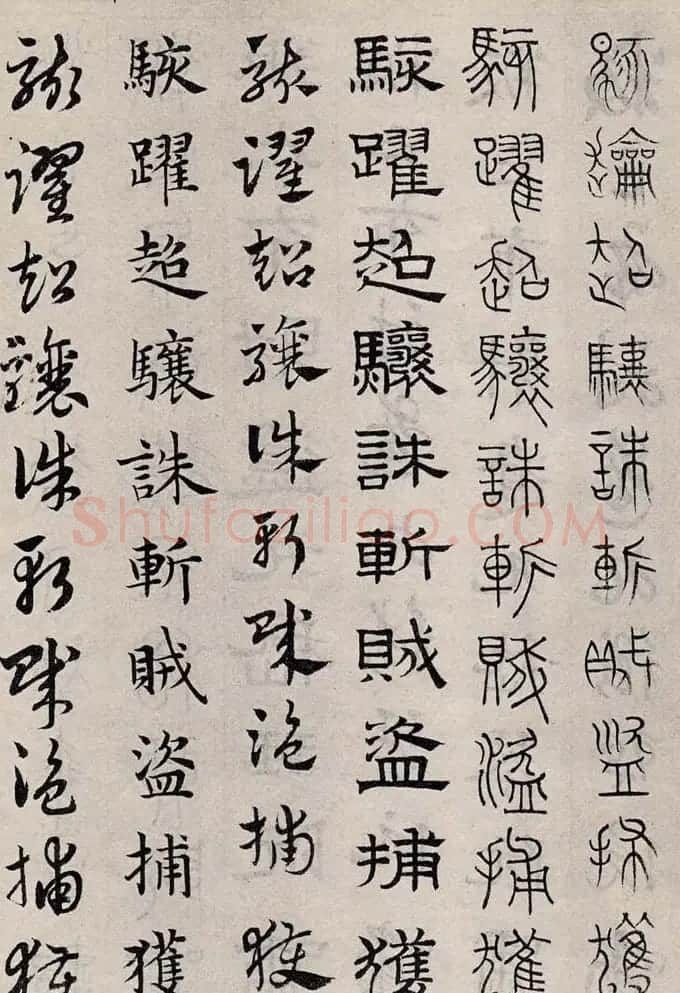 駭躍超驤誅斬賊盜捕獲
駭躍超驤誅斬賊盜捕獲
駭躍超驤誅斬賊盜捕獲
駭躍超驤誅斬賊盜捕獲
駭躍超驤誅斬賊盜捕獲
駭躍超驤誅斬賊盜捕獲
Shufaziliao.COM